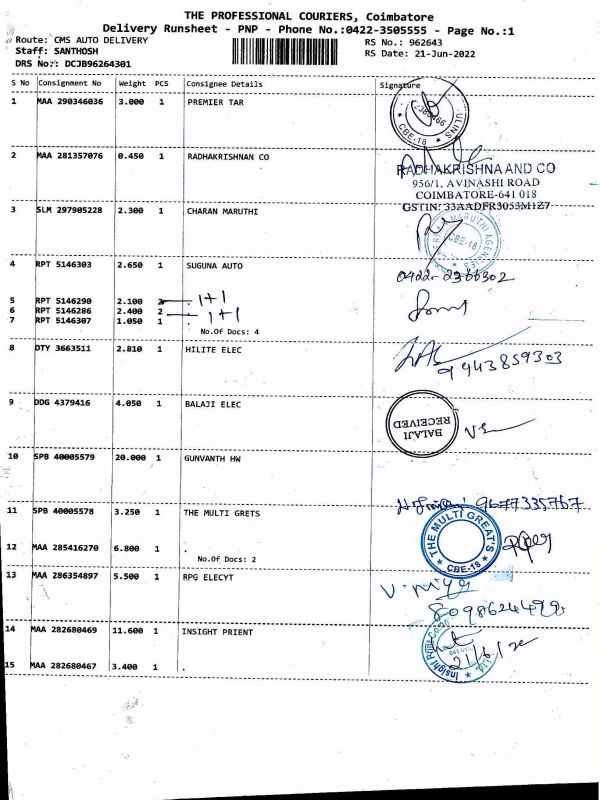 THE PROFESSIONAL COURIERS, Coimbatore
Delivery Runsheet - PNP - Phone No.:0422-3505555 - Page No.:1
Route: CMS AUTO DELIVERY
RS No.: 962643
Staff: SANTHOSH
RS Date: 21-Jun-2022
DRS No: DCJB96264301
S No Consignment No Weight PCS Consignee Details Signature
1 MAA 290346036 3.000 1 PREMIER TAR
CBE-18
2 MAA 281357076 0.450 1 RADHAKRISHNAN CO
RADHAKRISHNA AND CO
956/1, AVINASHI ROAD
COIMBATORE-641 018
GSTIN: 33AADFR3053M1Z7
3 SLM 297905228 2.300 1 CHARAN MARUTHI
MARUTHI AGENCIES
CBE-18
4 RPT 5146303 2.650 1 SUGUNA AUTO
0422-2366302
5 RPT 5146290 2.100 2 1+1
6 RPT 5146286 2.400 2 1+1
7 RPT 5146307 1.050 1 .
No.Of Docs: 4
8 DTY 3663511 2.810 1 HILITE ELEC
9943859303
9 DDG 4379416 4.050 1 BALAJI ELEC
BALAJI
RECEIVED
10 SPB 40005579 20.000 1 GUNVANTH HW
9677335767
11 SPB 40005578 3.250 1 THE MULTI GRETS
THE MULTI GREAT'S
CBE-18
12 MAA 285416270 6.800 1 .
No.Of Docs: 2
13 MAA 286354897 5.500 1 RPG ELECYT
14 MAA 282680469 11.600 1 INSIGHT PRIENT
21/6/22
15 MAA 282680467 3.400 1 .